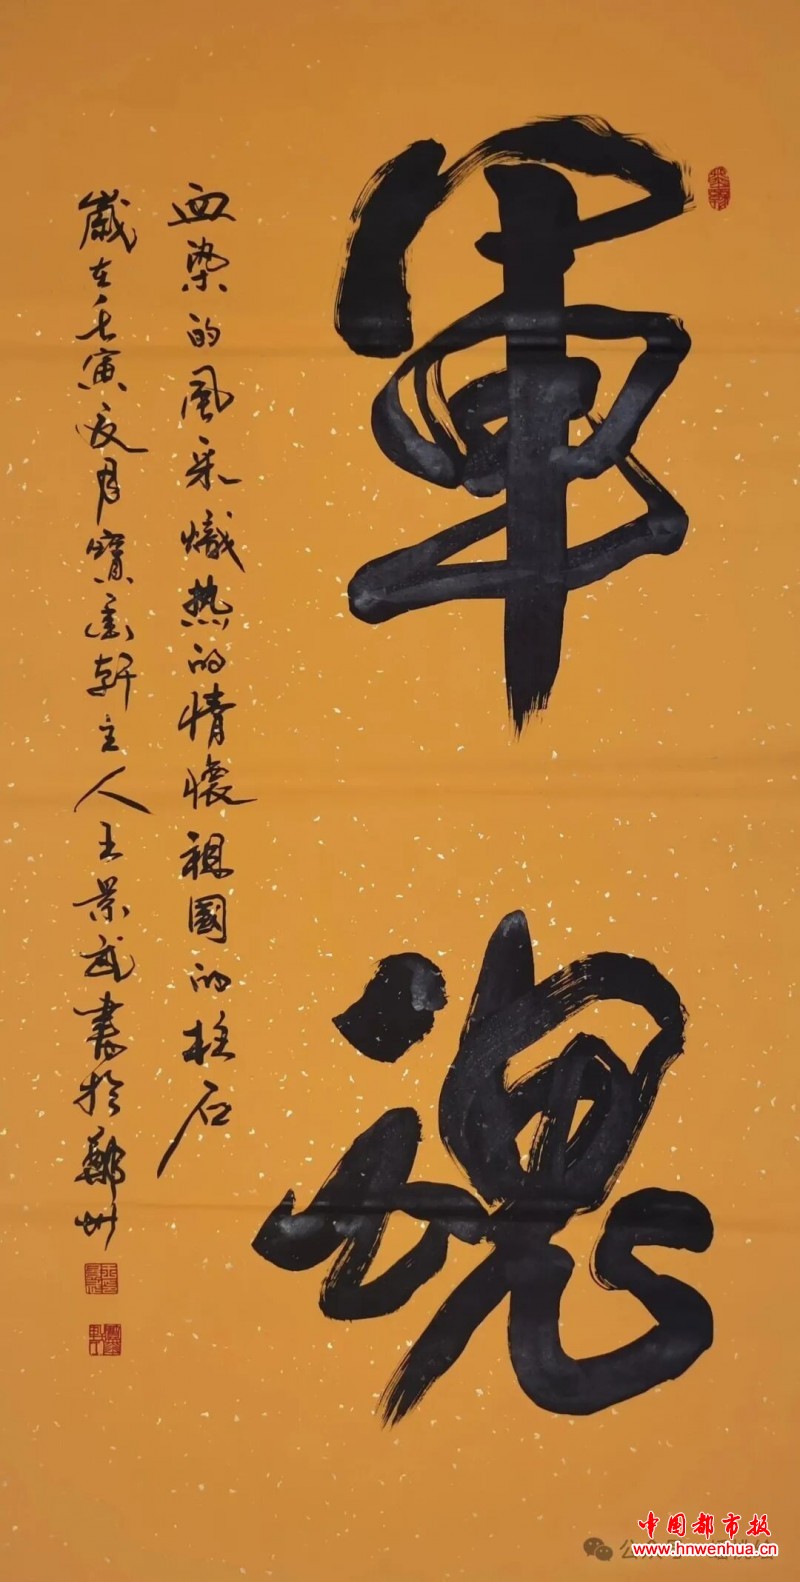 軍魂
血染的風采熾热的情懷祖國的柱石
歲在壬寅夏月寶墨軒主人王景武書於鄭州
中国都市报
www.hnwenhua.cn
公众号